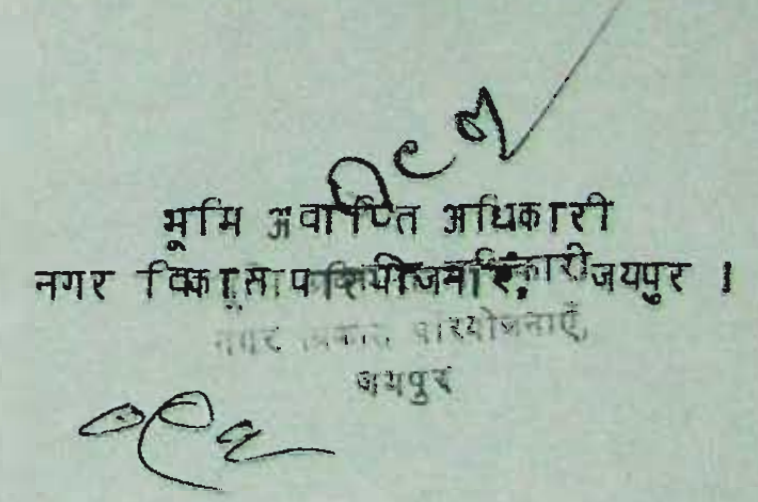 भूमि अवाप्ति अधिकारी
नगर विकास परियोजनाएं, जयपुर ।
अधिकारी
नगर विकास परियोजनाएँ,
जयपुर